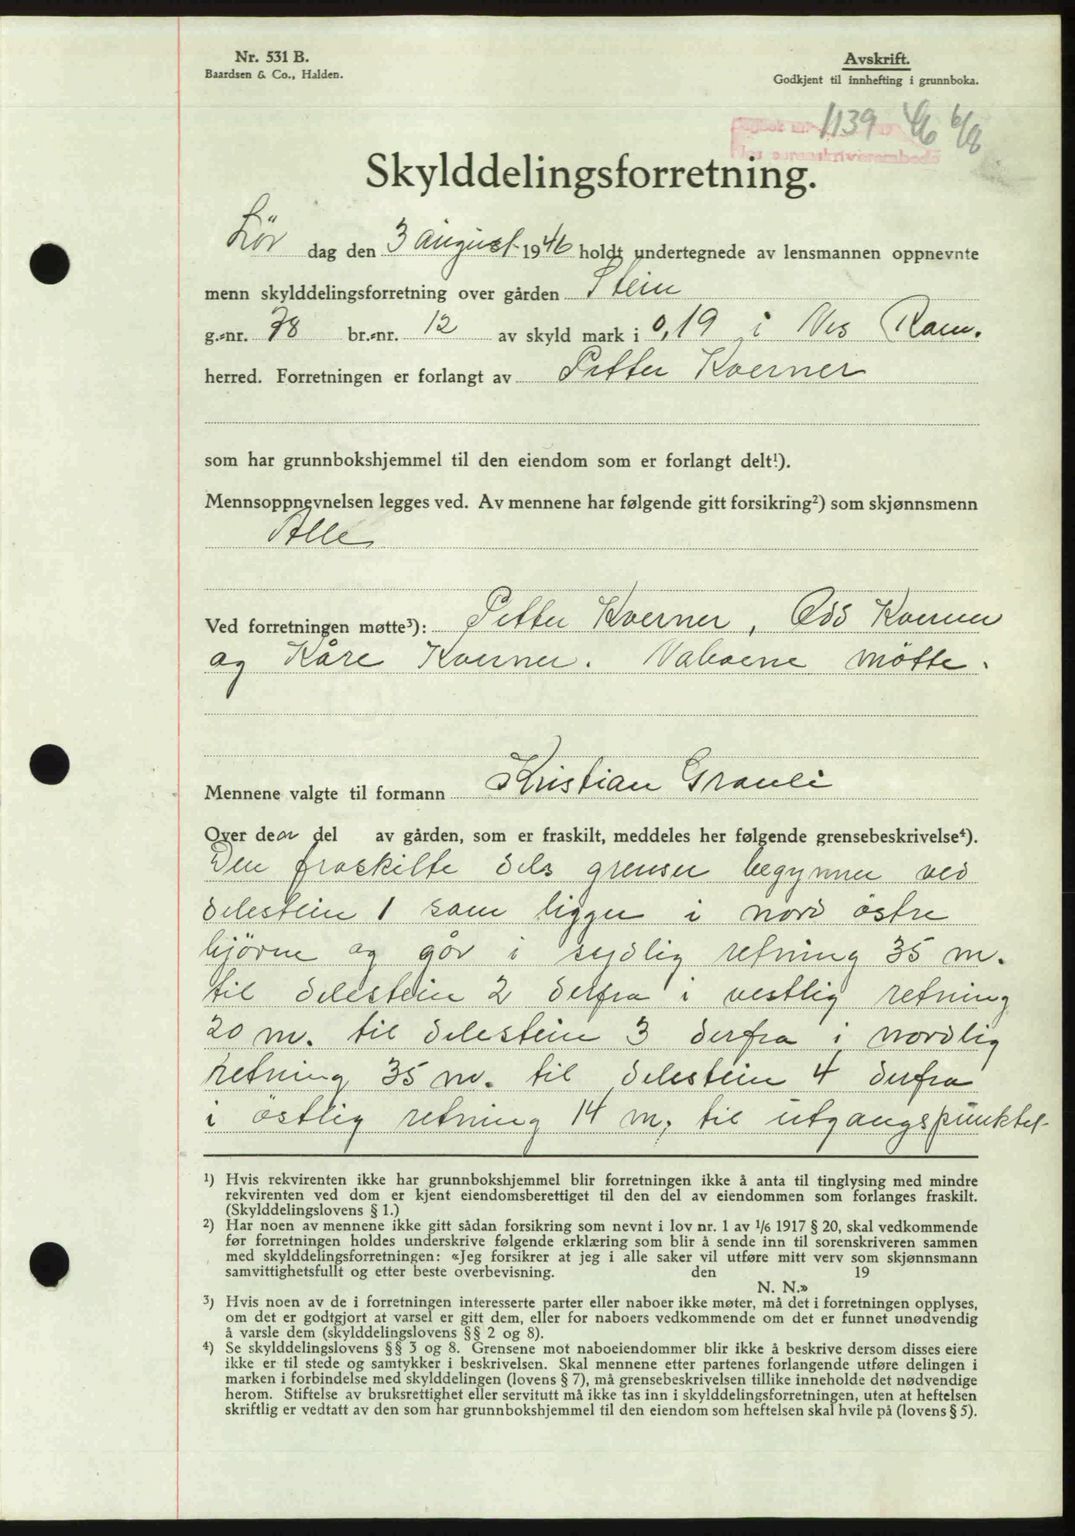 Nr. 531 B.
Baardsen & Co., Halden.
Avskrift.
Godkjent til innhefting i grunnboka.
1139 46 6/8
Skylddelingsforretning.
Lör dag den 3 august 1946 holdt undertegnede av lensmannen oppnevnte
menn skylddelingsforretning over gården Stein
g.-nr. 78 br.-nr. 12 av skyld mark i 0,19 i Nes Rom.
herred. Forretningen er forlangt av Petter Kverner
som har grunnbokshjemmel til den eiendom som er forlangt delt¹).
Mennsoppnevnelsen legges ved. Av mennene har følgende gitt forsikring²) som skjønnsmenn
Alle
Ved forretningen møtte³): Petter Kverner, Odd Kverner
og Kåre Kverner. Naboene møtte.
Mennene valgte til formann Kristian Grauli
Over den del av gården, som er fraskilt, meddeles her følgende grensebeskrivelse⁴).
Den fraskilte dels grenser begynner ved
delestein 1 som ligger i nord östre
hjörne og går i sydlig retning 35 m.
til delestein 2 derfra i vestlig retning
20 m. til delestein 3 derfra i nordlig
retning 35 m. til delestein 4 derfra
i östlig retning 14 m, til utgangspunktet
¹) Hvis rekvirenten ikke har grunnbokshjemmel blir forretningen ikke å anta til tinglysing med mindre
rekvirenten ved dom er kjent eiendomsberettiget til den del av eiendommen som forlanges fraskilt.
(Skylddelingslovens § 1.)
²) Har noen av mennene ikke gitt sådan forsikring som nevnt i lov nr. 1 av 1/6 1917 § 20, skal vedkommende
før forretningen holdes underskrive følgende erklæring som blir å sende inn til sorenskriveren sammen
med skylddelingsforretningen: «Jeg forsikrer at jeg i alle saker vil utføre mitt verv som skjønnsmann
samvittighetsfullt og etter beste overbevisning. den 19
N. N.»
³) Hvis noen av de i forretningen interesserte parter eller naboer ikke møter, må det i forretningen opplyses,
om det er godtgjort at varsel er gitt dem, eller for naboers vedkommende om det er funnet unødvendig
å varsle dem (skylddelingslovens §§ 2 og 8).
⁴) Se skylddelingslovens §§ 3 og 8. Grensene mot naboeiendommer blir ikke å beskrive dersom disses eiere
ikke er til stede og samtykker i beskrivelsen. Skal mennene etter partenes forlangende utføre delingen i
marken i forbindelse med skylddelingen (lovens § 7), må grensebeskrivelsen tillike inneholde det nødvendige
herom. Stiftelse av bruksrettighet eller servitutt må ikke tas inn i skylddelingsforretningen, uten at heftelsen
skriftlig er vedtatt av den som har grunnbokshjemmel til den eiendom som heftelsen skal hvile på (lovens § 5).